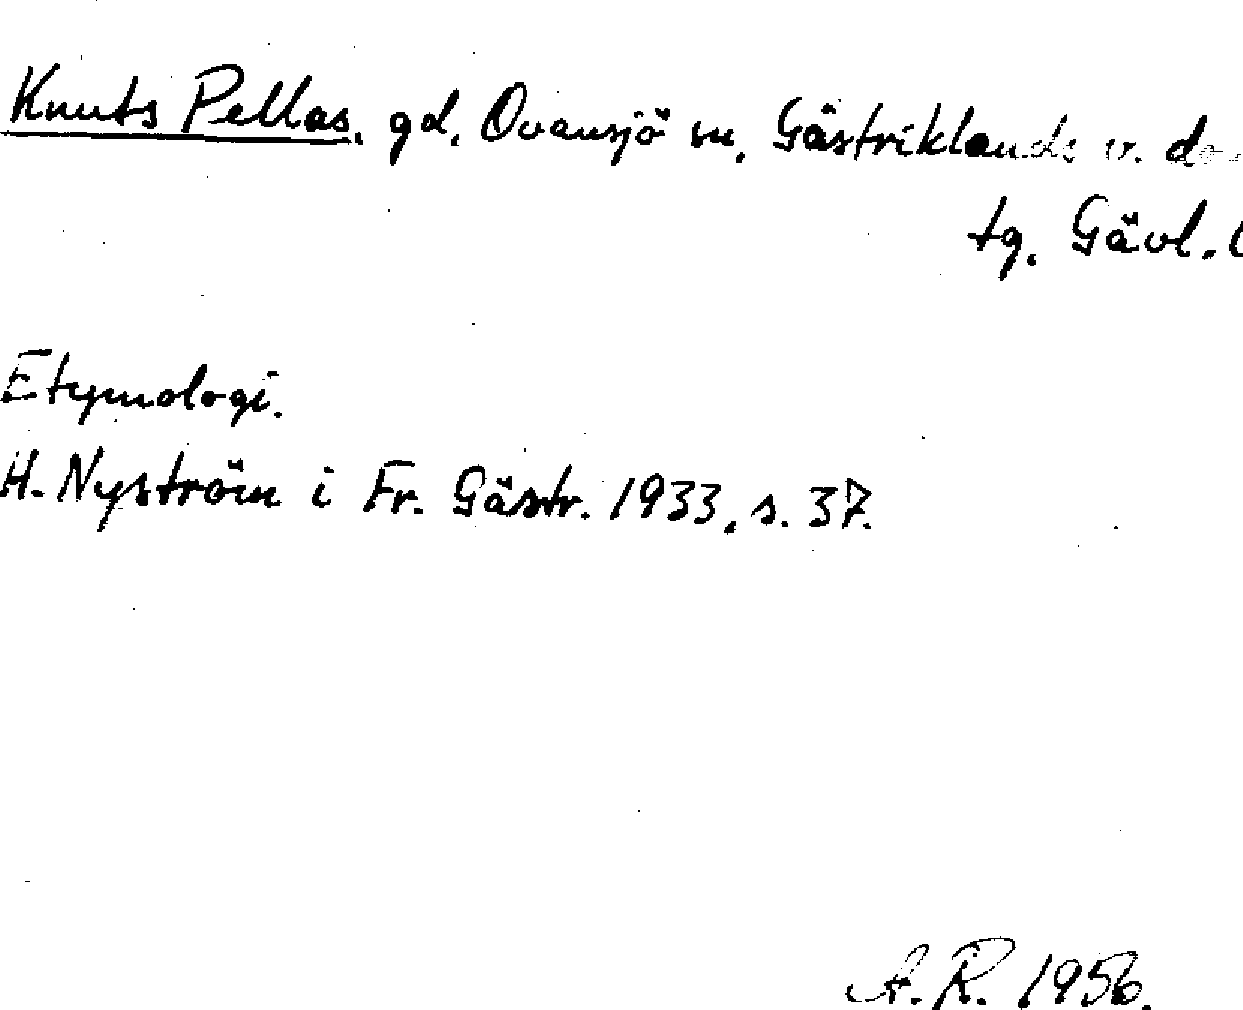 Knuts Pellas, gd, Ovansjö sn, Gästriklands v. do-
tg, Gävl. l
Etymologi.
H. Nyström i Fr. Gästr. 1933, s. 37.
A.R. 1956.